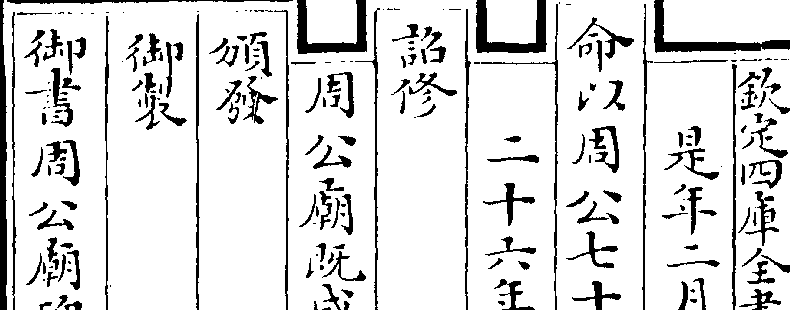 欽定四庫全書
是年二月
命以周公七十
二十六年
詔修
周公廟既成
頒發
御製
御書周公廟碑